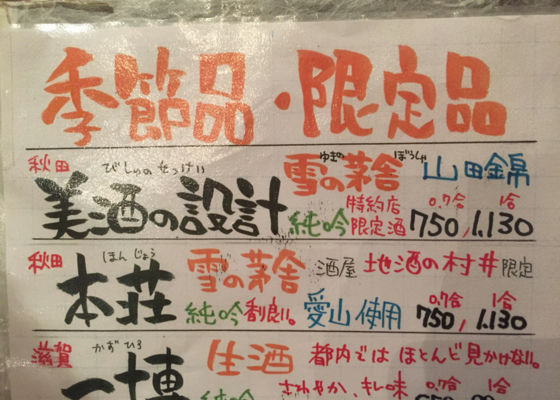 季節品・限定品
秋田 びしゅのせっけい 雪の茅舎 ゆきの ぼうしゃ 山田錦
美酒の設計 純吟 特約店限定酒 0.7合 750, 1合 1.130
秋田 ほんじょう 雪の茅舎 酒屋 地酒の村井限定
本荘 純吟 割良い。 愛山使用 0.7合 750, 1合 1.130
滋賀 かずひろ 生酒 都内ではほとんど見かけない。
一博 純吟 さわやか、キレ味 0.7合 1合